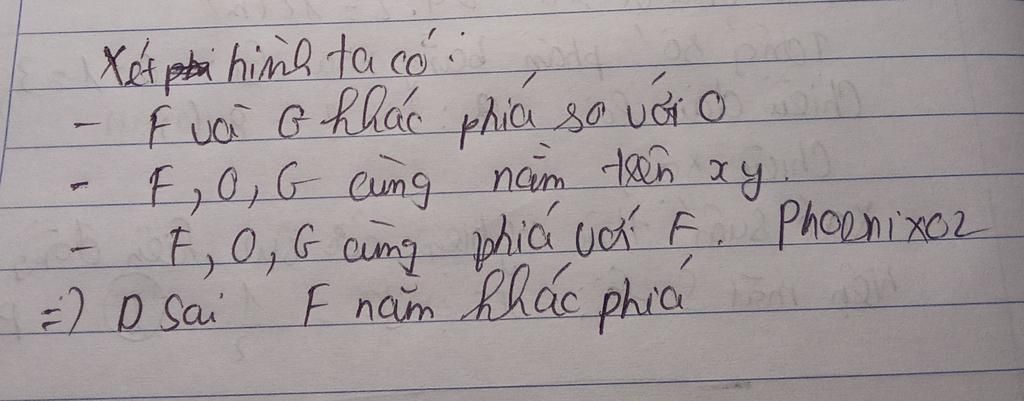 Xét hình ta có:
- F và G khác phía so với O
- F, O, G cùng nằm trên xy.
- F, O, G cùng phía với F. Phoenixoz
=) D sai F nằm khác phía